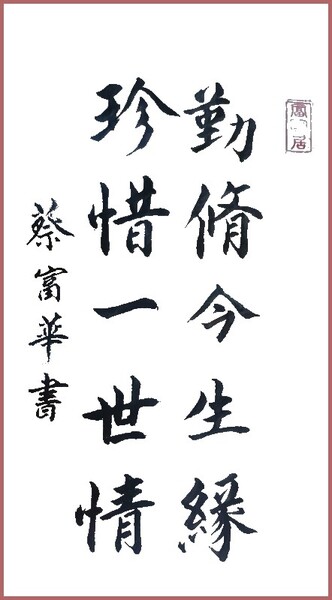 勤脩今生緣
珍惜一世情
蔡富華書